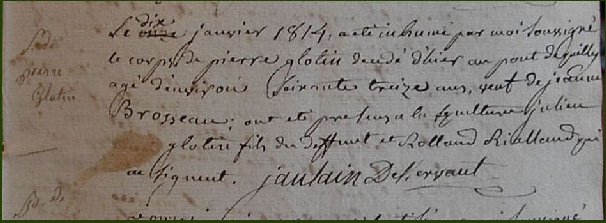 Le dix janvier 1814, a été inhumé par moi soussigné
le corps de pierre glotin décédé d'hier au pont de
agé d'environ soixante treize ans, veuf de jeanne
Brosseau; ont été présens a la sépulture julien
glotin fils du deffunt et Rolland Riallaud qui
ne signent.
Sre de
pierre
Glotin